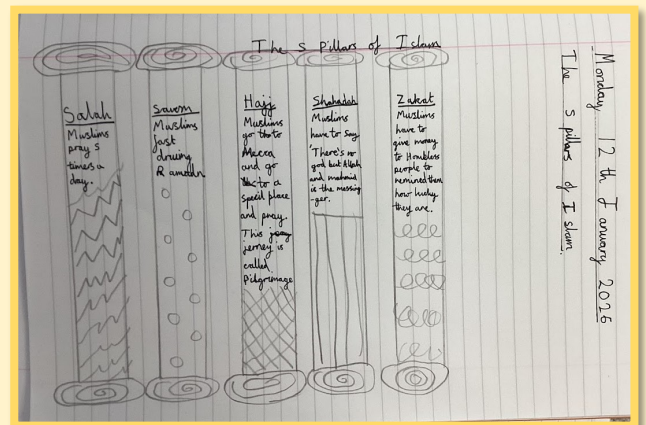 The 5 pillars of Islam
Salah
Muslims
pray 5
times a
day.
Sawm
Muslims
fast
druing
Ramadn
Hajj
Muslims
go to
Mecca
and go
to a
specil place
and pray.
This
jerney is
called
Pilgrimage
Shahadah
Muslims
have to say
'There's no
god but Allah
and mahamid
is the messing
-ger.
Zakat
Muslims
have to
give money
to Hombless
people to
remined them
how lucky
they are.
Monday 12th January 2026
The 5 pillars of Islam.